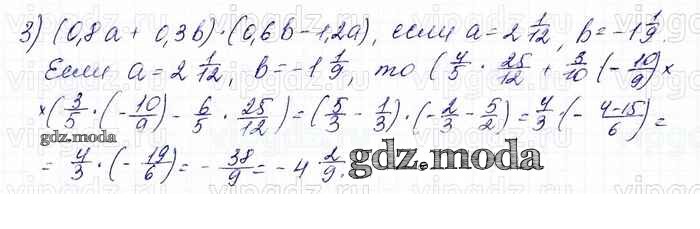 3) (0,8a + 0,3b)·(0,6b-1,2a), если a = 2 1/12, b = -1 1/9.
Если a = 2 1/12, b = -1 1/9, то (4/5 · 25/12 + 3/10 (-10/9) ×
× (3/5 · (-10/9) - 6/5 · 25/12) = (5/3 - 1/3) · (-2/3 - 5/2) = 4/3 · (- 4-15/6) =
gdz.moda
= 4/3 · (- 19/6) = - 38/9 = -4 2/9.
gdz.moda